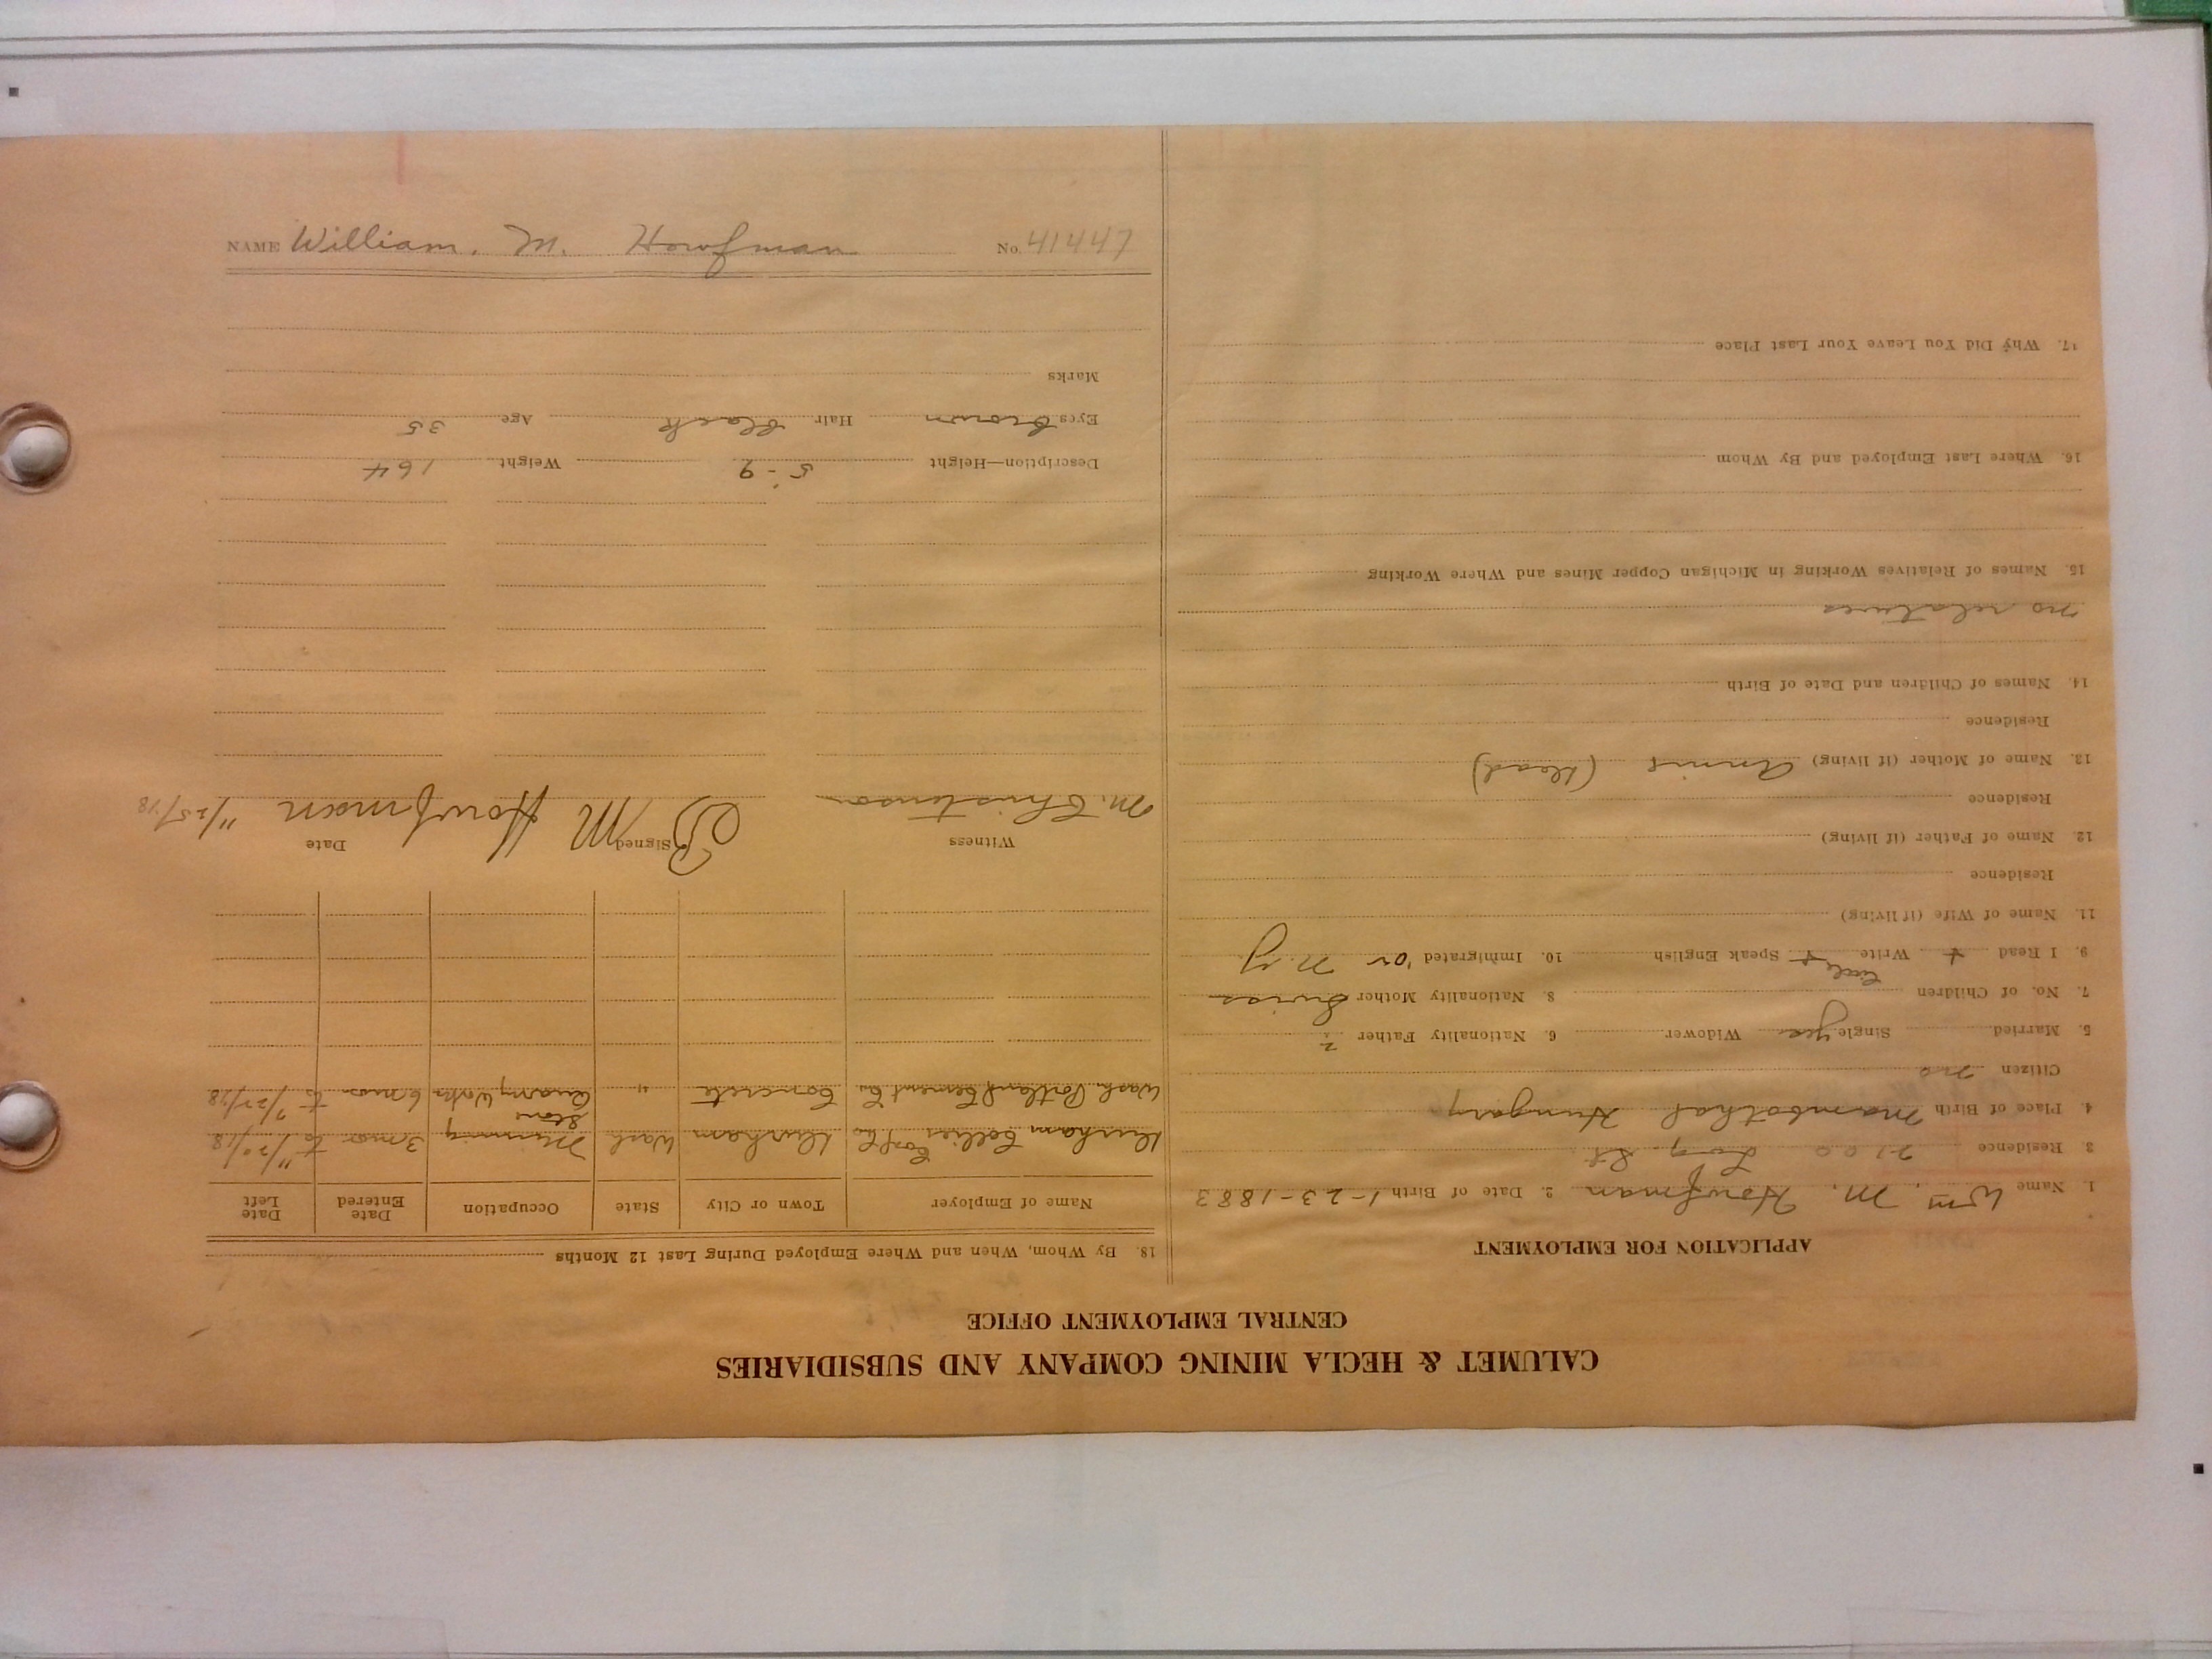 CALUMET & HECLA MINING COMPANY AND SUBSIDIARIES
CENTRAL EMPLOYMENT OFFICE
APPLICATION FOR EMPLOYMENT
1. Name Wm. M. Howfman 2. Date of Birth 1-23-1883
3 Residence 2100 Long St
4. Place of Birth Hungary
Citizen no
5. Married Single yes Widower 6. Nationality Father
7. No. of Children 8. Nationality Mother Swiss
9. I Read Write Speak English little 10. Immigrated '02 N.Y
11. Name of Wife (if living)
Residence
12. Name of Father (if living)
Residence
13. Name of Mother (if living) Annie (dead)
Residence
14. Names of Children and Date of Birth
no relatives
15. Names of Relatives Working in Michigan Copper Mines and Where Working
16. Where Last Employed and By Whom
17. Why Did You Leave Your Last Place
18. By Whom, When and Where Employed During Last 12 Months
Name of Employer Town or City State Occupation Date Entered Date Left
Durham Collieries Durham Wash Mining 3 mos to 11/20/18
Wash Portland Cement Co Concrete " Stone Quarry Work 6 mos to 7/27/18
Witness Signed Date
M. Christenson M Howfman 11/25/18
Description—Height 5-9 Weight 164
Eyes brown Hair black Age 35
Marks
NAME William. M. Howfman No. 41447